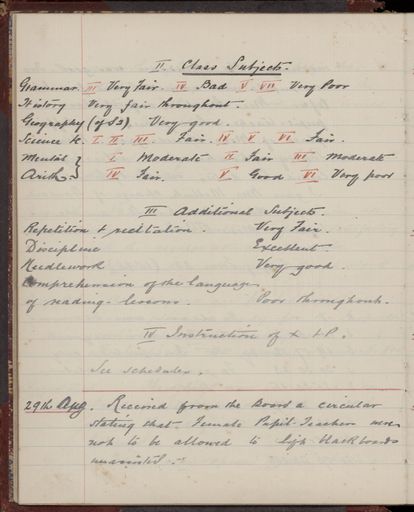 II Class Subjects.
Grammar III Very Fair. IV Bad V. VII Very Poor
History Very fair throughout.
Geography (of S2) Very good.
Science &c. I. II. III. Fair. IV V VI Fair.
Mental } I Moderate II Fair III Moderate
Arith. } IV Fair. V Good VI Very poor
III Additional Subjects.
Repetition & recitation. Very Fair.
Discipline Excellent.
Needlework Very good.
Comprehension of the language
of reading-lessons. Poor throughout.
IV Instruction of
See schedules.
29th Aug. Received from the Board a circular
stating that Female Pupil Teachers were
not to be allowed to lift blackboards
unassisted.